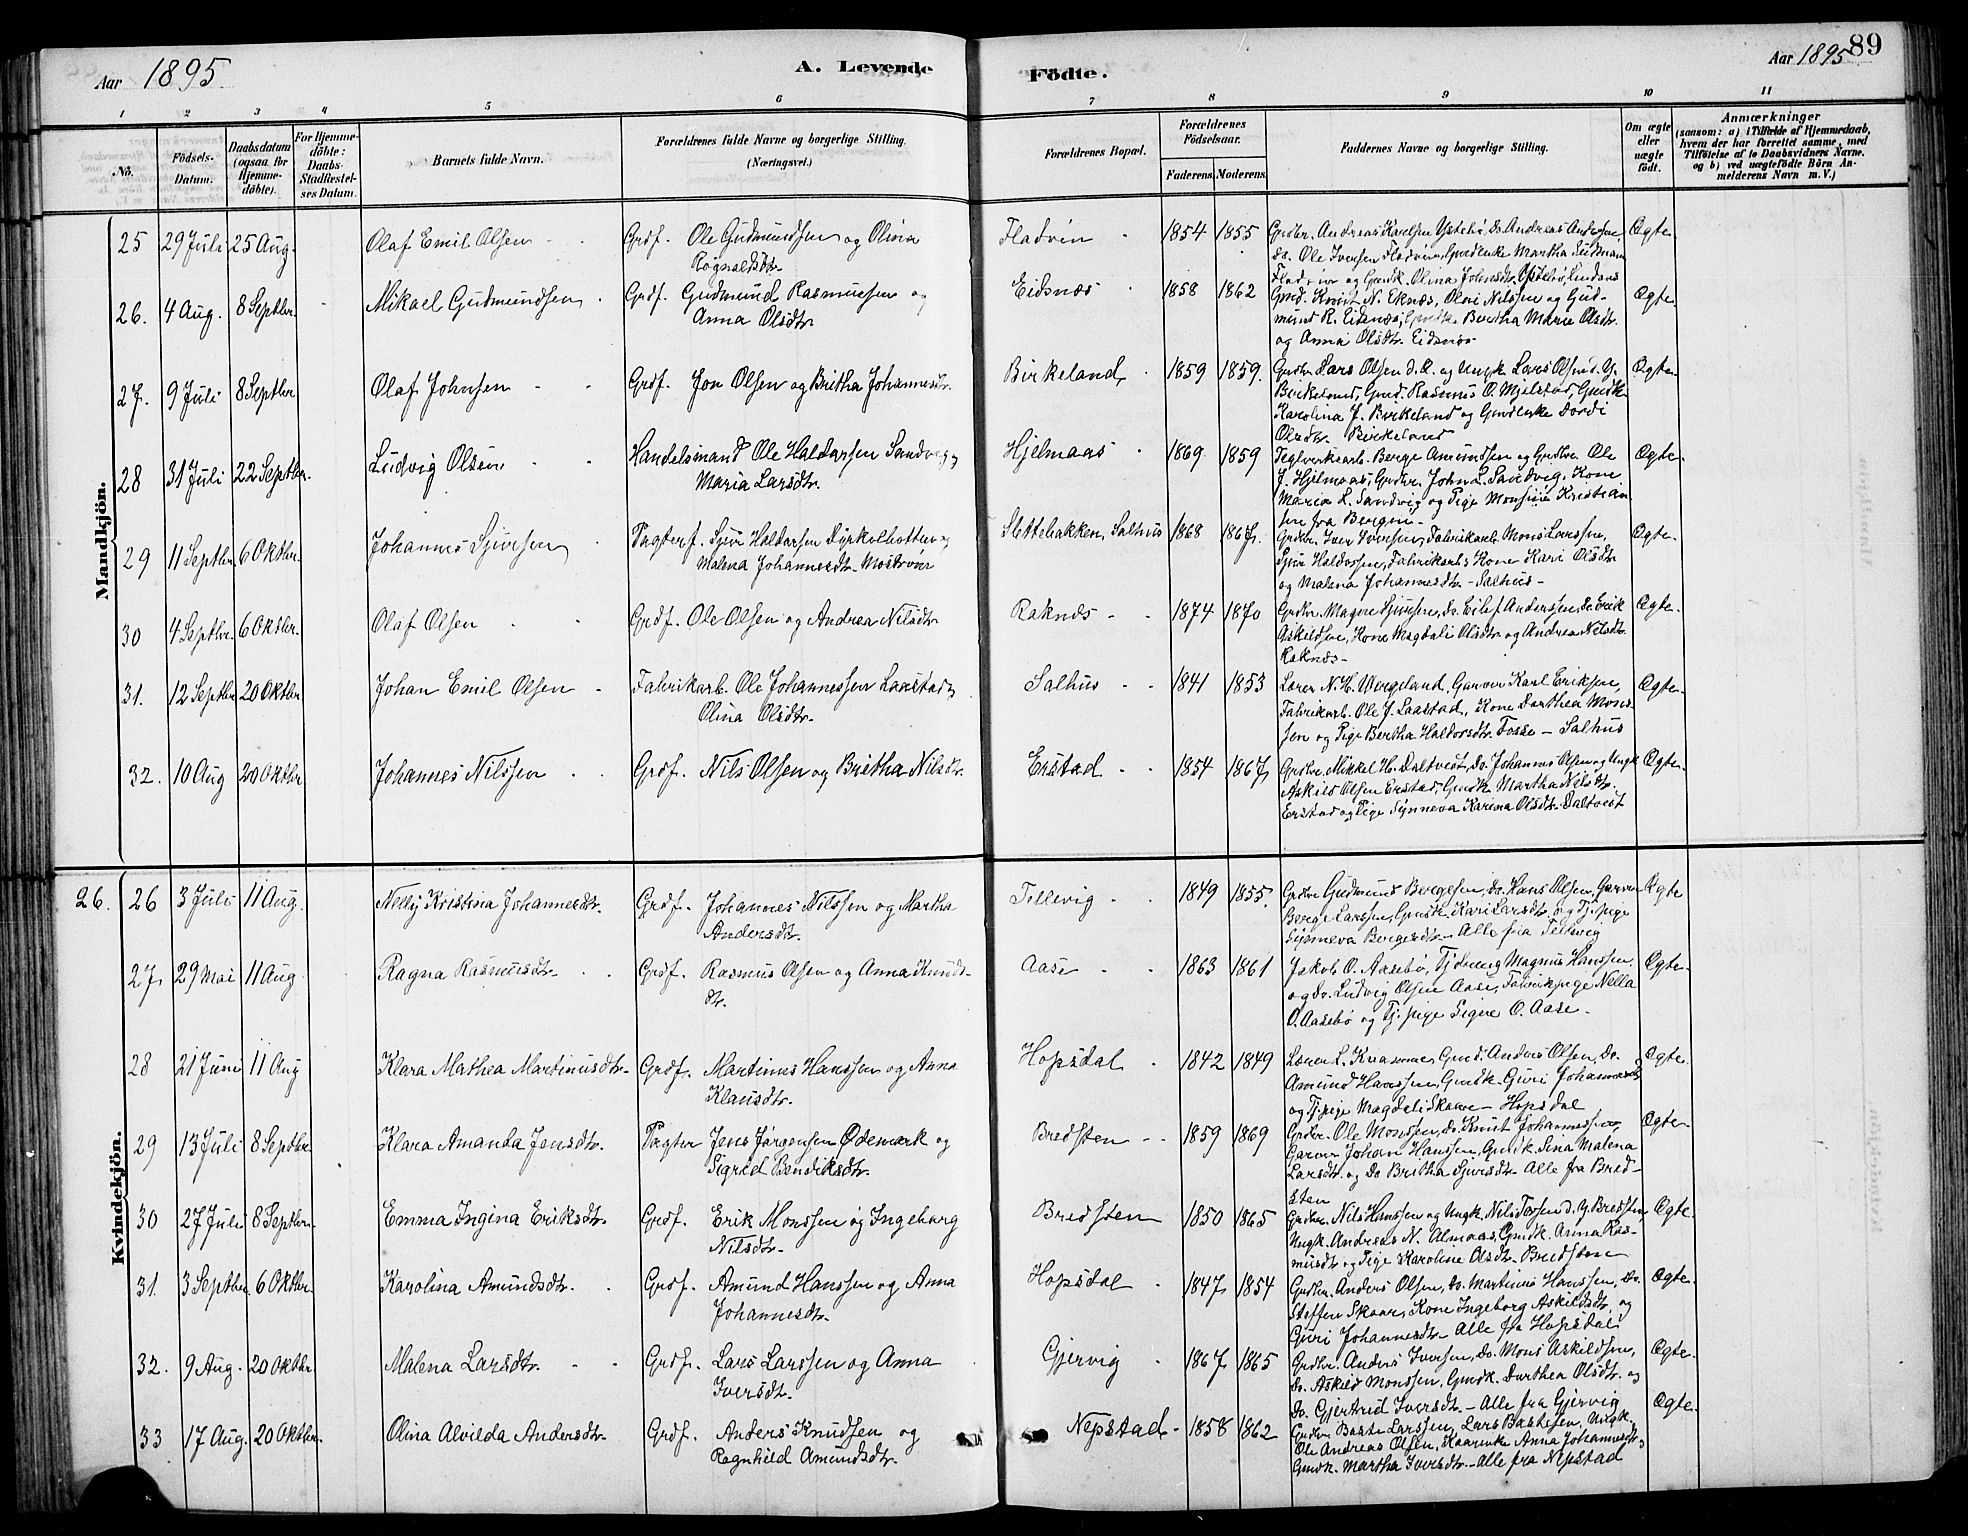 Aar 1895. A. Levende Födte. Aar 1895. 89
1 2 3 4 5 6 7 8 9 10 11
No. Födsels-Datum. Daabsdatum (ogsaa for Hjemmedöbte). For Hjemmedöbte: Daabs-Stadfæstelses Datum. Barnets fulde Navn. Forældrenes fulde Navne og borgerlige Stilling. (Næringsvei.) Forældrenes Bopæl. Forældrenes Födselsaar. Faderens. Moderens. Faddernes Navne og borgerlige Stilling. Om ægte eller uægte födt. Anmærkninger (saasom: a) i Tilfælde af Hjemmedaab, hvem der har forrettet samme, med Tilföielse af to Daabsvidners Navne. og b) ved uægtefödte Börn Anmelderens Navn m. V.)
Mandkjön.
25 29 Juli 25 Aug. Olaf Emil Olsen Grdf. Ole Gudmundsen og Olivia Fladvin 1854 1855 Grdbr. Andreas Knudsen Ystebö, Do. Andreas Andersen, Ægte
Rognaldsdtr. Do. Ole Iversen Fladvin, Gmdenke Martha
Fladvin og Gmdk. Olina Johnsdtr. Ystebö,
26. 4 Aug. 8 Septbr. Mikael Gudmundsen Grdf. Gudmund Rasmussen og Eidsnæs 1858 1862 Gmd. Knut N. Eknæs, Olai Nilssen og Gud- Ægte
Anna Olsdtr. mund R. Eidsnæs, Gmdk. Bertha Marie Olsdtr.
og Anna Olsdtr. Eidsnæs
27. 9 Juli 8 Septbr Olaf Johnsen Grdf. Jon Olsen og Britha Johannesdtr. Birkeland 1859 1859. Grdbr. Lars Olsen d. Æ. og Ungk. Lars Olsen d. Y. Ægte
Birkeland, Gmd. Rasmus O. Mjelstad, Gmdk.
Karolina J. Birkeland og Gmdenke Dordi
Olsdtr. Birkeland
28 31 Juli 22 Septbr. Ludvig Olsen Handelsmand Ole Haldorsen Sandvig og Hjelmaas 1869 1859 Teglverksarb. Berge Amundssen og Grdbr. Ole Ægte
Maria Larsdtr. J. Hjelmaas, Grdbr. John L. Sandvig, Kone
Maria L. Sandvig og Pige Monsine Kristian-
sen fra Bergen
29 11 Septbr. 6 Oktbr. Johannes Sjursen Pagterf. Sjur Haldorsen Dyrkolbotten og Slettebakken, Salhus 1868 1867. Grdbr. Iver Iversen, Fabrikarb. Mons Larssen, Ægte
Malena Johannesdtr. Mostrøen Sjur Haldorsen, Fabrikarb.s Kone Kari Olsdtr.
og Malena Johannesdtr. - Salhus -
30 4 Septbr. 6 Oktbr. Olaf Olsen Grdf. Ole Olsen og Andrea Nilsdtr. Raknæs 1874 1870 Grdbr. Magne Sjursen, Do. Eilef Anderssen, Do. Erik Ægte
Askildsen, Kone Magdali Olsdtr. og Andrea Nilsdtr.
Raknæs -
31. 12 Septbr 20 Oktbr. Johan Emil Olsen Fabrikarb. Ole Johannessen Laastad og Salhus 1841 1853 Lærer N. H. Wergeland, Garver Karl Eriksen, Ægte
Olina Olsdtr. Fabrikarb. Ole J. Laastad, Kone Dorthea Mons-
sen og Pige Bertha Haldorsdtr. Fosse - Salhus
32. 10 Aug 20 Oktbr. Johannes Nilssen Grdf. Nils Olsen og Britha Nilsdtr. Erstad 1854 1867 Grdbr. Mikkel H. Daltveit, Do. Johannes Olsen og Ungk. Ægte
Askild Olsen Erstad, Gmdk. Martha Nilsdtr.
Erstad og Pige Synneva Karina Olsdtr. Daltveit
Kvindekjön.
26. 26 3 Juli 11 Aug. Nelly Kristina Johannesdtr. Grdf. Johannes Nilssen og Martha Tellevig 1849 1855. Grdbr. Gudmund Bergesen, Do. Hans Olsen, Garver Ægte
Andersdtr. Berge Larssen, Gmdk. Kari Larsdtr. og Tj. pige
Synneva Bergesdtr. - Alle fra Tellevig
27. 29 Mai 11 Aug Ragna Rasmusdtr. Grdf. Rasmus Olsen og Anna Knuds- Aase 1863 1861 Jakob O. Aasebö, Tjdreng Magnus Hanssen Ægte
dtr. og Do. Ludvig Olsen Aase, Fabrikpige Nella
O. Aasebö og Tj. pige Sigrie O. Aase.
28 21 Juni 11 Aug Klara Mathea Martinusdtr. Grdf. Martinus Hanssen og Anna Hopsdal 1842 1849 Lærer L. Gmd. Anders Olsen, Do. Ægte
Klausdtr. Amund Hanssen, Gmdk. Guri Johannesdtr.
og Tj. pige Magdeli Skaar - Hopsdal
29 13 Juli 8 Septbr. Klara Amanda Jensdtr. Pagter Jens Jørgensen Ødemark og Bredsten 1859 1869 Grdbr. Ole Monssen, Do. Knut Johannessen, Ægte
Sigrid Bendiksdtr. Garver Johan Hanssen, Gmdk. Sina Malena
Larsdtr. og Do. Britha Sjursdtr. - Alle fra Bred-
sten
30 27 Juli 8 Septbr. Emma Ingina Eriksdtr. Grdf. Erik Monssen og Ingeborg Bredsten 1850 1865 Grdbr. Nils Hanssen og Ungk. Nils Torsen d. Y. Bredsten, Ægte
Nilsdtr. Ungk. Andreas N. Almaas, Gmdk. Anna Ras-
musdtr og Pige Karoline Olsdtr. Bredsten
31. 3 Septbr 6 Oktbr. Karolina Amundsdtr. Grdf. Amund Hanssen og Anna Hopsdal 1847 1854 Grdbr. Anders Olsen, Do. Martinus Hanssen, Do. Ægte
Johannesdtr. Steffen Skaar, Kone Ingeborg Askildsdtr. og
Guri Johannesdtr. - Alle fra Hopsdal
32. 9 Aug. 20 Oktbr Malena Larsdtr. Grdf. Lars Larssen og Anna Gjervig 1867 1865 Grdbr. Anders Iversen, Do. Mons Askildsen, Ægte
Iversdtr. Do. Askild Monssen, Gmdk. Dorthea Olsdtr. og
Do. Gjertrud Iversdtr. - Alle fra Gjervig
33 17 Aug. 20 Oktbr. Olina Alvilda Andersdtr. Grdf. Anders Knudsen og Nepstad 1858 1862 Grdbr. Baste Larssen, Lars Bastesen, Ungk. Ægte
Ragnhild Amundsdtr. Ole Andreas Olsen, Kaarenke Anna Johannesdtr.
Gmdk. Martha Iversdtr. - Alle fra Nepstad